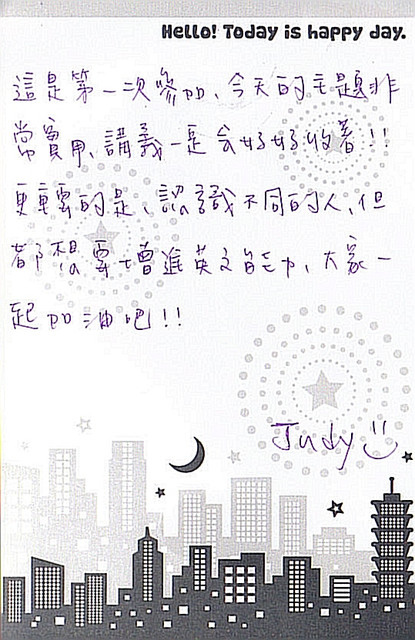 Hello! Today is happy day.
這是第一次參加、今天的主題非
常實用、講義一定会好好收着!!
更重要的是、認識不同的人、但
都想要增進英文能力、大家一
起加油吧!!
Judy